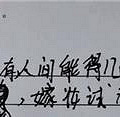 有人间能得几
,嫁妆试